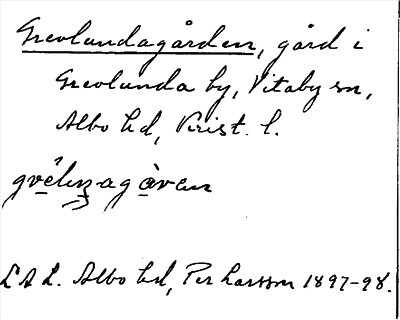 Grevlundagården, gård i
Grevlunda by, Vitaby sn,
Albo hd, Krist. l.
gvélnzagàran
L A L. Albo hd, Per Larsson 1897-98.